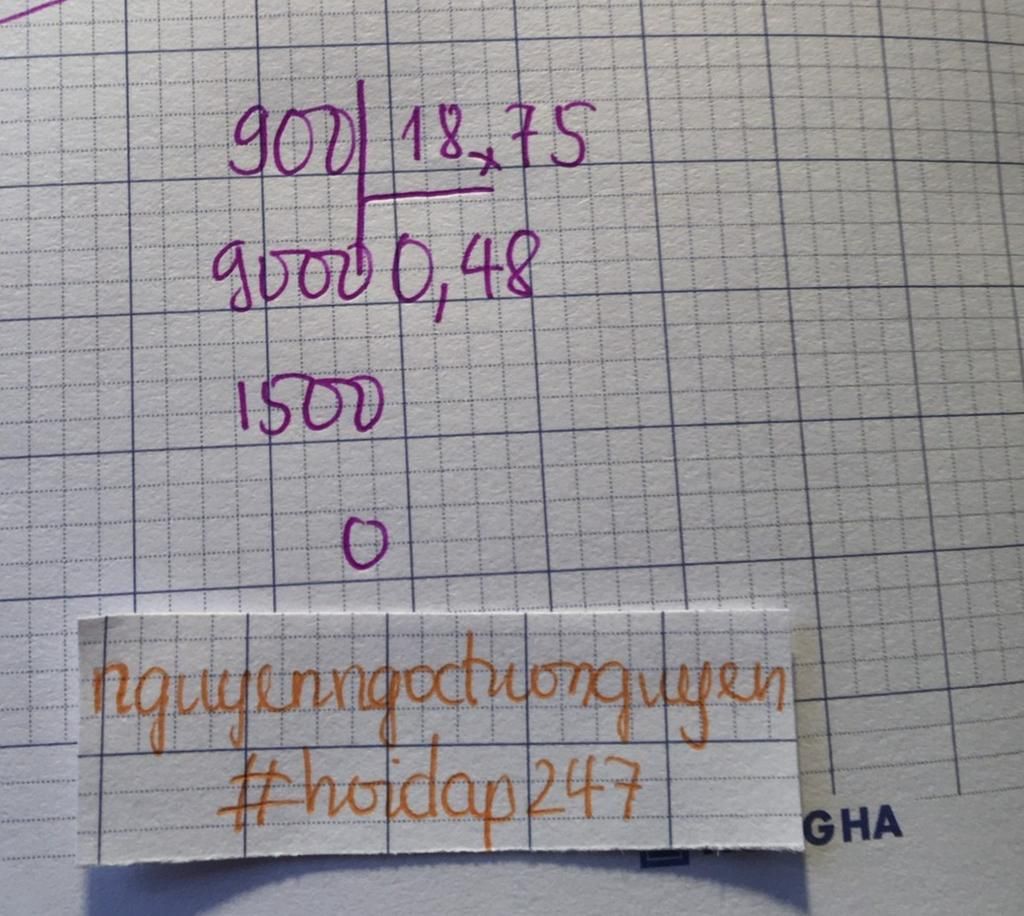 900 18,75
9000 0,48
1500
0
nguyenngoctuonguyen
#hoidap247
GHA